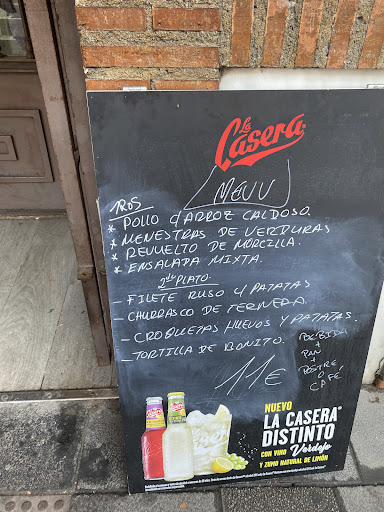 La
Casera
MENU
1ROS
* POLLO Y ARROZ CALDOSO.
* MENESTRAS DE VERDURAS
* REVUELTO DE MORCILLA.
* ENSALADA MIXTA.
2do PLATO
- FILETE RUSO Y PATATAS
- CHURRASCO DE TERNERA.
- CROQUETAS HUEVOS Y PATATAS.
- TORTILLA DE BONITO.
11€
BEBIDA
+
PAN
+
POSTRE
O
CAFÉ
NUEVO
LA CASERA®
DISTINTO
CON VINO Verdejo
Y ZUMO NATURAL DE LIMÓN